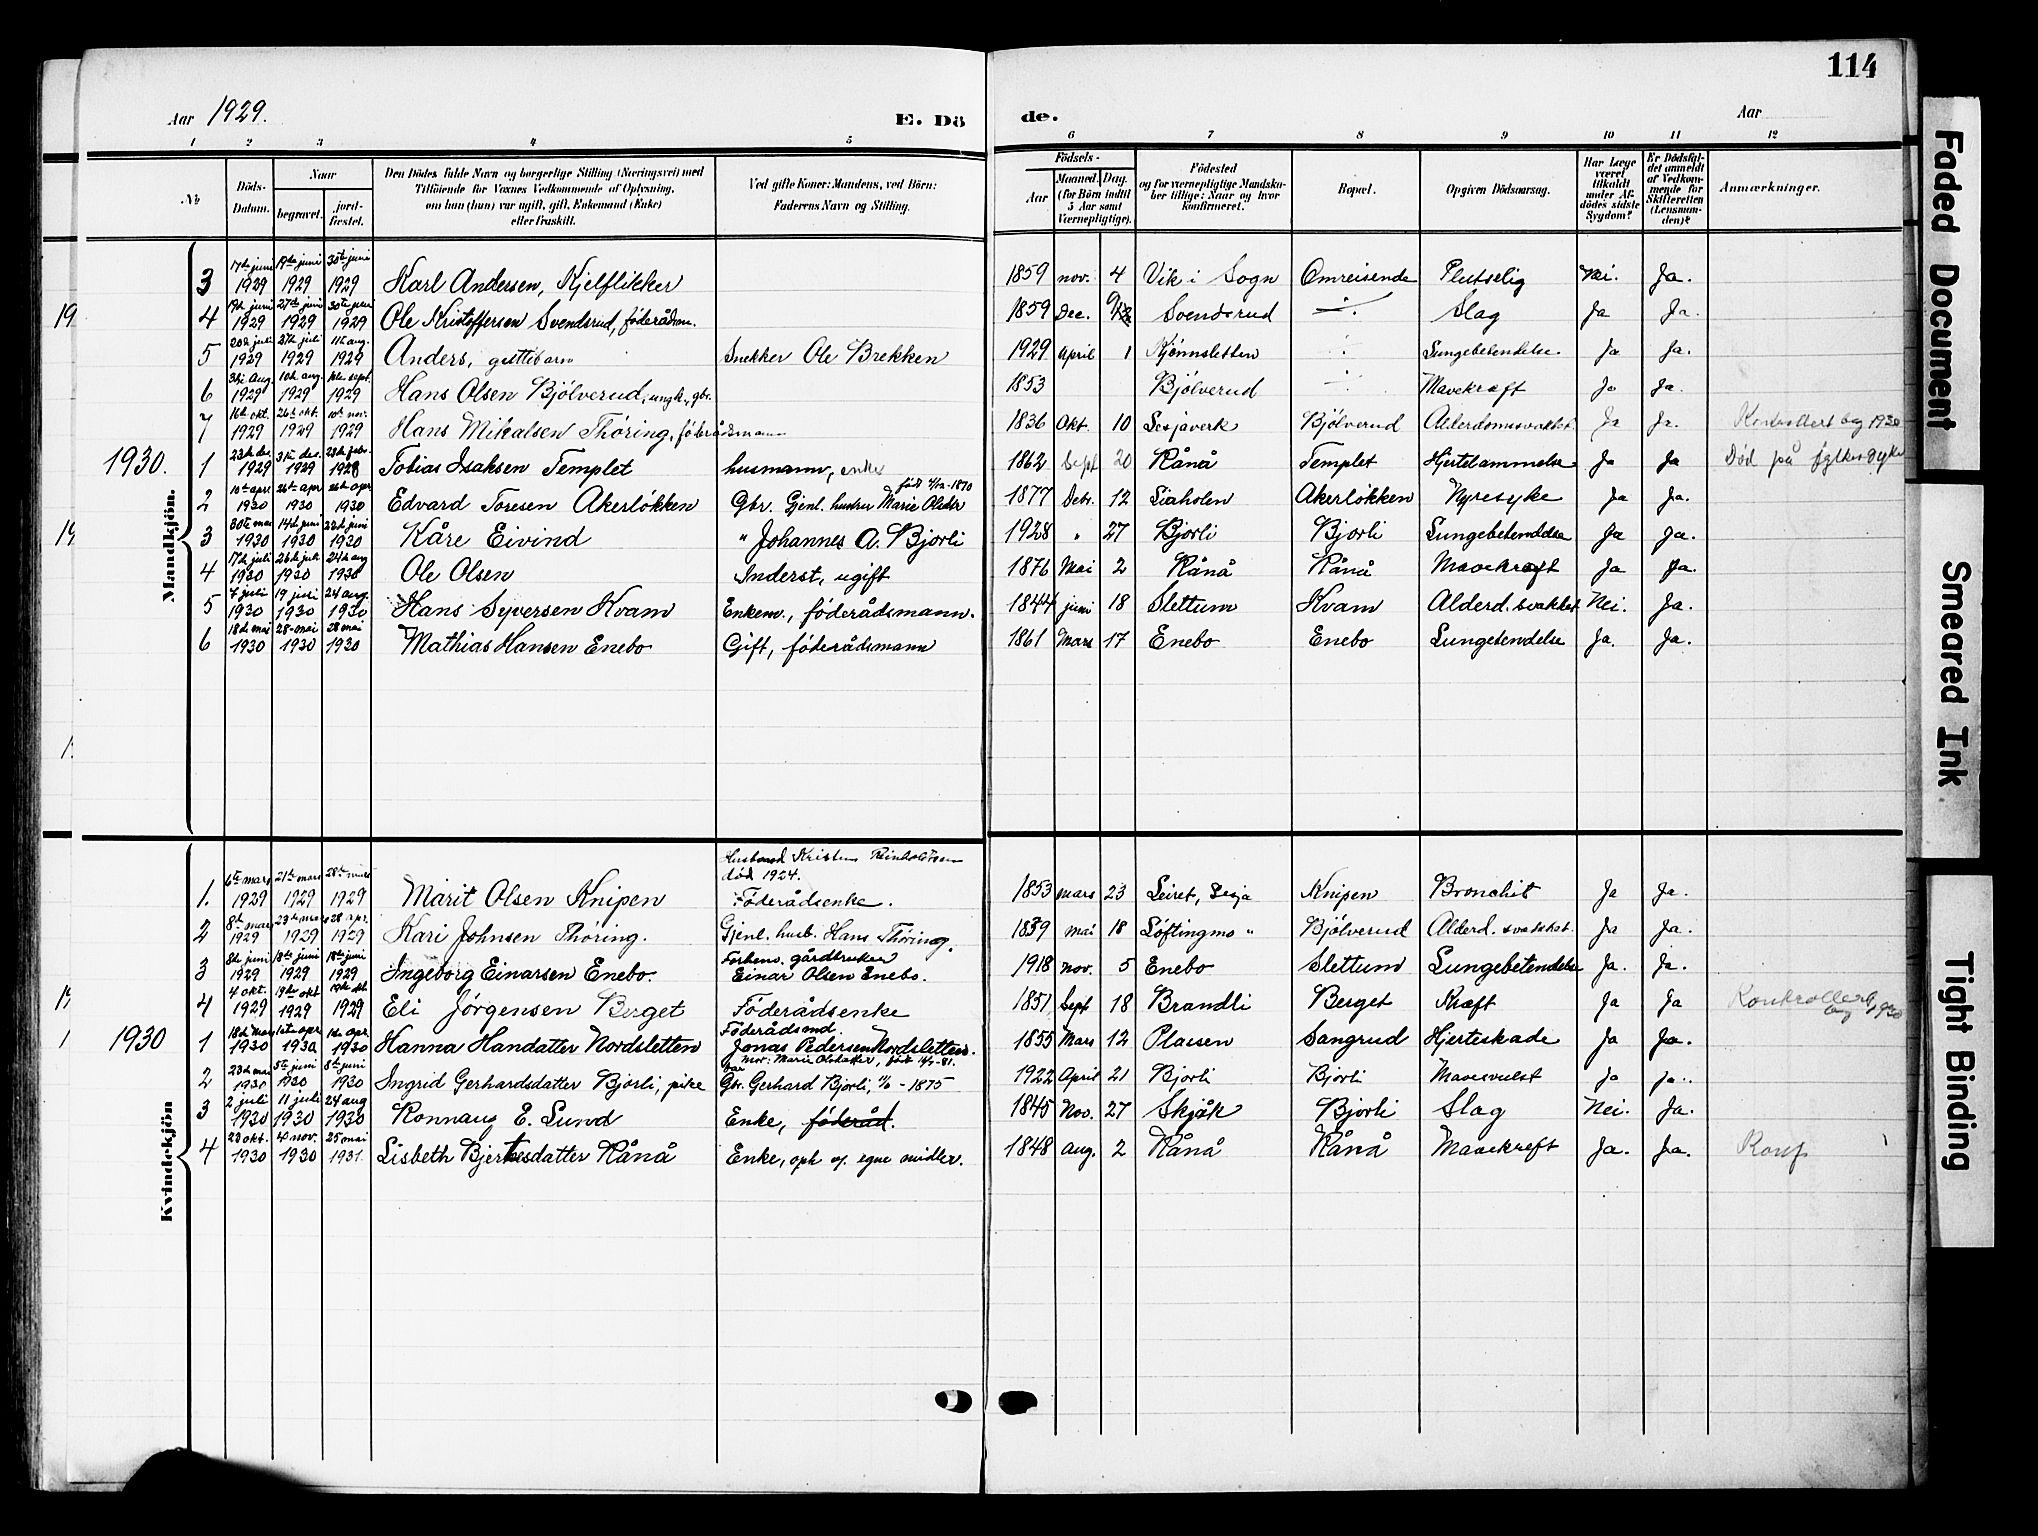 114
Aar 1929.
E. Dö de.
Aar
1 2 3 4 5 6 7 8 9 10 11 12
№
Döds-Datum.
Naar
begravet.
jord-fæstet.
Den Dödes fulde Navn og borgerlige Stilling (Næringsvei) med Tilföiende for Voxnes Vedkommende af Oplysning, om han (hun) var ugift, gift, Enkemand (Enke) eller fraskilt.
Ved gifte Koner: Mandens, ved Börn: Faderens Navn og Stilling.
Födsels-
Aar
Maaned. Dag.
(for Börn indtil 5 Aar samt Værnepligtige).
Födested og for værnepligtige Mandskaber tillige: Naar og hvor konfirmeret.
Bopæl.
Opgiven Dödsaarsag.
Har Læge været tilkaldt under Afdödes sidste Sygdom?
Er Dödsfaldet anmeldt af Vedkommende for Skifteretten (Lensmanden)?
Anmærkninger.
Mandkjön.
3 17de juni 1929 19de juni 1929 30te juni 1929 Karl Andersen, Kjelflikker 1859 nov. 4 Vik i Sogn Omreisende Plutselig Nei. Ja.
4 19de juni 1929 27de juni 1929 30te juni 1929 Ole Kristoffersen Svendsrud, føderådsm. 1859 Dec. Svendsrud Slag Ja Ja.
5 20de juli 1929 27de juli 1929 11te aug. 1929 Anders, guttebarn Snekker Ole Brekken 1929 April 1 Kjønnsletten Lungebetendelse. Ja Ja.
6 3die Aug. 1929 10de aug. 1929 1ste sept. 1929 Hans Olsen Bjölverud, ungk., gbr. 1853 Bjölverud Mavekræft Ja Ja.
7 16de okt. 1929 26de okt. 1929 10de nov. 1929 Hans Mikalsen Thøring, føderådsmann 1836 Okt. 10 Lesjaverk Bjölverud Alderdomssvakhet Ja Ja. Kontrollert og 1930
1930. 1 23de des. 1929 31te des. 1929 1928 Tobias Isaksen Templet husmann, enke 1862 Sept 20 Rånå Templet Hjertelammelse Ja Ja Død på fylkes
2 10de apr 1930 26de apr 1930 26de apr 1930 Edvard Toresen Åkerløkken Gbr. Gjenl. hustru Marie Olsdtr 1877 Debr. 12 Liaholen Akerløkken Nyresyke Ja Ja.
3 30te mai 1930 14de juni 1930 22de juni 1930 Kåre Eivind " Johannes A. Bjorli 1928 " 27 Bjorli Bjorli Lungebetendelse Ja Ja.
4 17de juli 1930 26de juli 1930 24de aug 1930 Ole Olsen Inderst, ugift 1876 Mai 2 Rånå Rånå Mavekræft Ja Ja.
5 7 juli 1930 19 juli 1930 24 aug. 1930 Hans Syversen Kvam Enkem., føderådsmann. 1844 juni 18 Slettum Kvam Alderd. svakhet Nei. Ja.
6 18de mai 1930 28-mai 1930 28 mai 1930 Mathias Hansen Enebo Gift, føderådsmann 1861 Mars 17 Enebo Enebo Lungebetendelse Ja. Ja.
Kvindekjön
Husbond Kristen Reinholdtsen
død 1924.
1. 6te mars 1929 21te mars 1929 28de mars 1929 Marit Olsen Knipen Føderådsenke. 1853 mars 23 Leiret, Lesja Knipen Bronchit Ja Ja.
2 8de mars 1929 23de mars 1929 28 apr. 1929 Kari Johnsen Thøring. Gjenl. husb. Hans Thøring. 1839 mai 18 Løftingmo " Bjölverud Alderd. svakhet. Ja Ja.
3 8de juni 1929 18de juni 1929 18de juni 1929 Ingeborg Einarsen Enebo. Forhenv. gårdbruker Einar Olsen Enebo. 1918 nov. 5 Enebo Slettum Lungebetendelse Ja. Ja.
4 4 okt. 1929 19de okt 1929 1929 Eli Jørgensen Berget Føderådsenke 1851 Sept 18 Brandli Berget Kræft Ja Ja Kontrollert og 1930
1930 1 18de Mars 1930 1ste apr 1930 1ste apr. 1930 Hanna Handatter Nordsletten Føderådsmd. Jonas Pedersen Nordsletten. 1855 Mars 12 Plassen Sangrud Hjerteskade Ja Ja.
Mor: Marie Olsdatter, født
2 23de mai 1930 5te juni 1930 8te juni 1930 Ingrid Gerhardsdatter Bjorli, pike Gbr. Gerhard Bjorli, - 1875 1922 April 21 Bjorli Bjorli Mavesvulst Ja Ja.
3 2 juli 1930 11 juli 1930 24 aug 1930 Ronnaug E. Lund Enke, føderåd. 1845 Nov. 27 Skjåk Bjorli Slag Nei. Ja.
4 23 okt. 1930 4 nov. 1930 25 mai 1931. Lisbeth Bjertnesdatter Rånå Enke, oph av. egne midler. 1848 aug. 2 Rånå Rånå Mavekræft Ja. Ja. Konf
Faded Document
Smeared Ink
Tight Binding